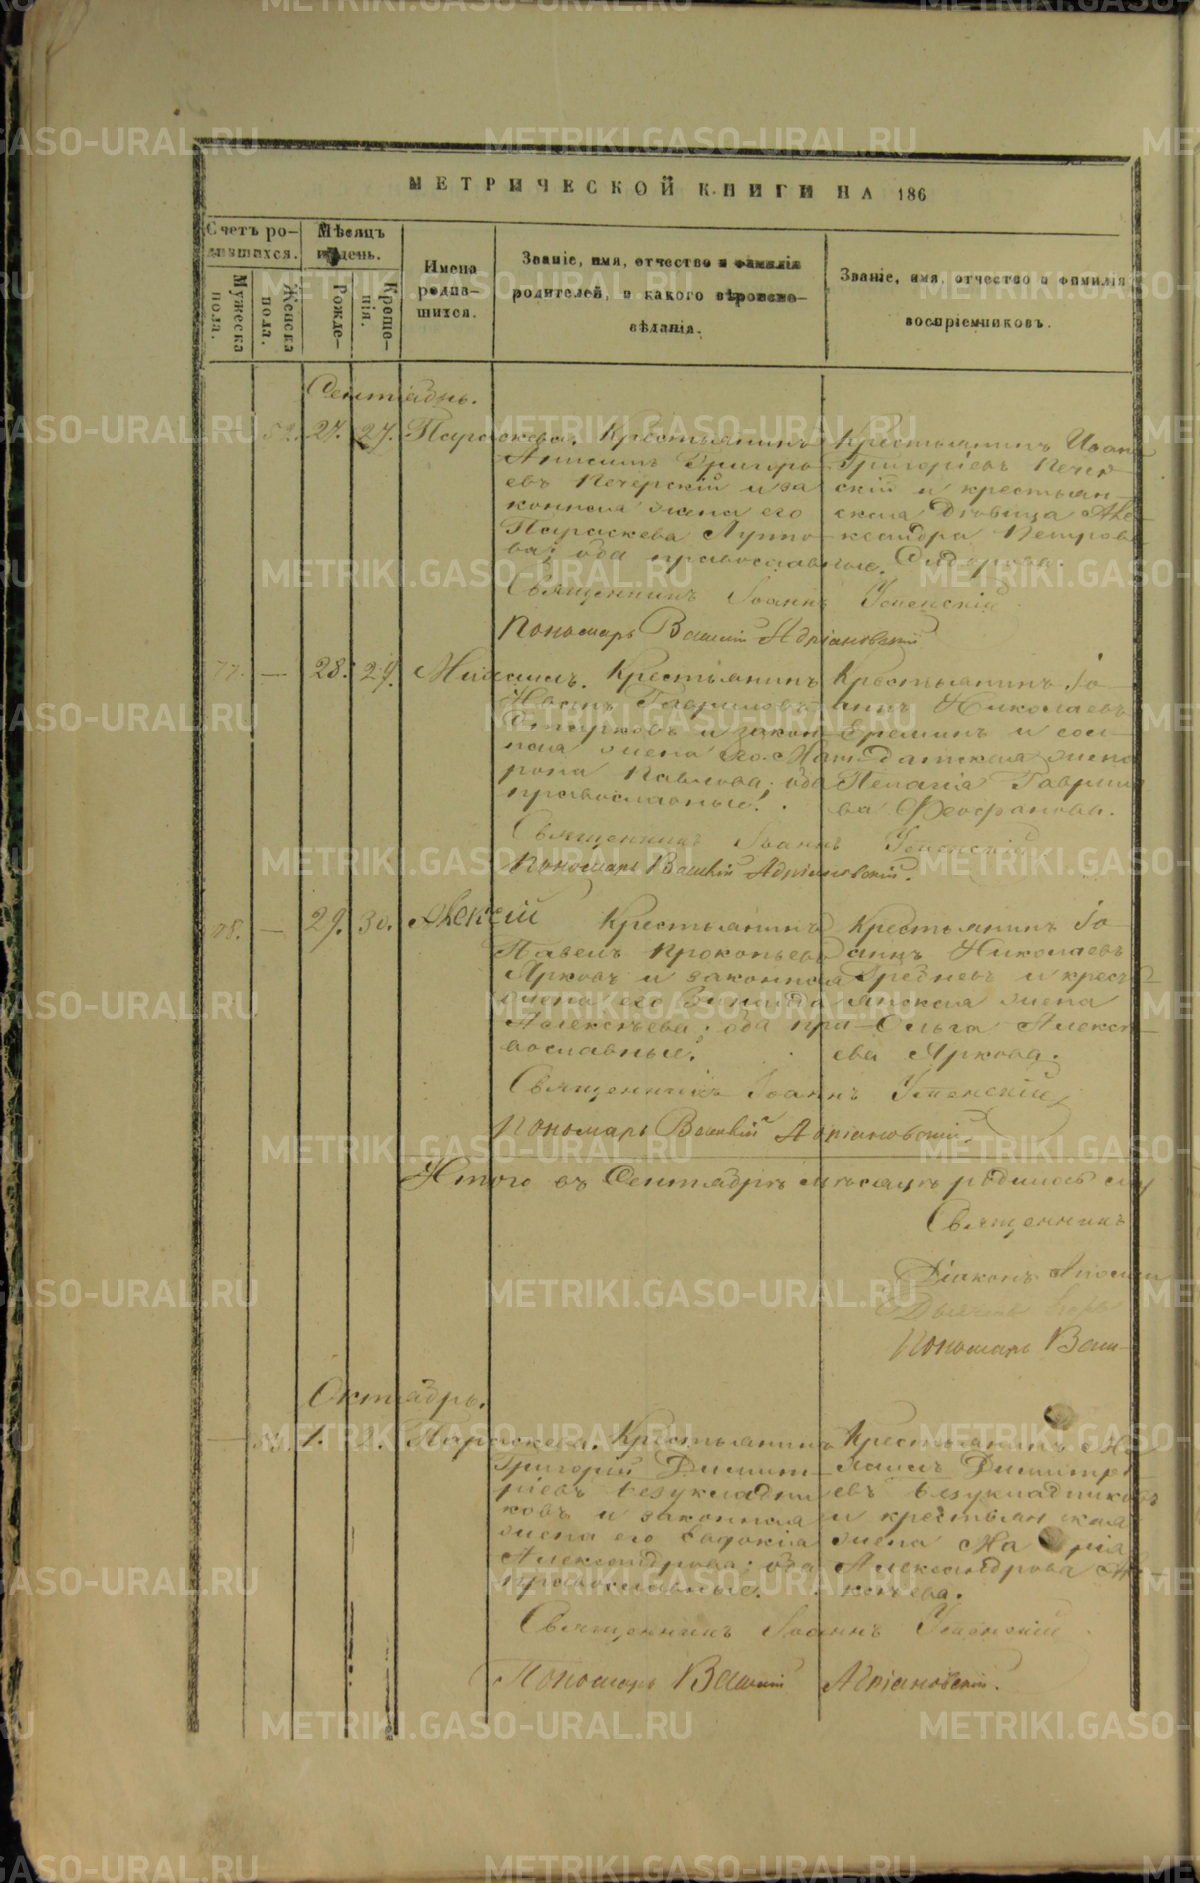 МЕТРИЧЕСКОЙ КНИГИ НА 186
Счетъ родившихся.
Мѣсяцъ и день.
Имена родившихся.
Званіе, имя, отчество и фамилія родителей, и какого вѣроисповѣданія.
Званіе, имя, отчество и фамилія воспріемниковъ.
Мужеска пола.
Женска пола.
Рожде-
Крещенія.
Сентябрь.
27. 27. Параскева. Крестьянинъ
Анисимъ Григорь
евъ Печерскій и за
конная жена его
Параскева
ва; оба православные.
Крестьянинъ Иванъ
Григоріевъ Печер
скій и крестьян-
ская дѣвица Але-
ксандра Петрова
Сидорова.
Священникъ Іоаннъ Успенскій
Пономарь Василій Адріановскій
77. — 28. 29. Михаилъ. Крестьянинъ
Гавриловъ
и закон-
ная жена его Мат-
рона Павлова; оба
православные.
Крестьянинъ Іо-
аннъ Николаевъ
Ереминъ и сол-
датская жена
Пелагія Гаврило
ва Феофанова.
Священникъ Іоаннъ Успенскій
Пономарь Василій Адріановскій.
78. — 29. 30. Алексій Крестьянинъ
Павелъ Прокопьевъ
Ярковъ и законная
жена его Зинаида
Алексѣева; оба пра-
вославные.
Крестьянинъ Іо-
аннъ Николаевъ
Гредневъ и крест
янская жена
Ольга Алексѣ-
ева Яркова.
Священникъ Іоаннъ Успенскій
Пономарь Василій Адріановскій.
Итого въ Сентябрѣ мѣсяцѣ родилось
Священникъ
Діаконъ
Дьячекъ
Пономарь Васи-
Октябрь.
— 1. 2. Параскева. Крестьянинъ
Григорій Димит-
ріевъ Безукладни
ковъ и законная
жена его Евдокія
Александрова; оба
православные.
Крестьянинъ
Димитрі
евъ Безукладниковъ
и крестьянская
жена Марія
Александрова Але-
ксѣева.
Священникъ Іоаннъ Успенскій
Пономарь Василій Адріановскій.
METRIKI.GASO-URAL.RU